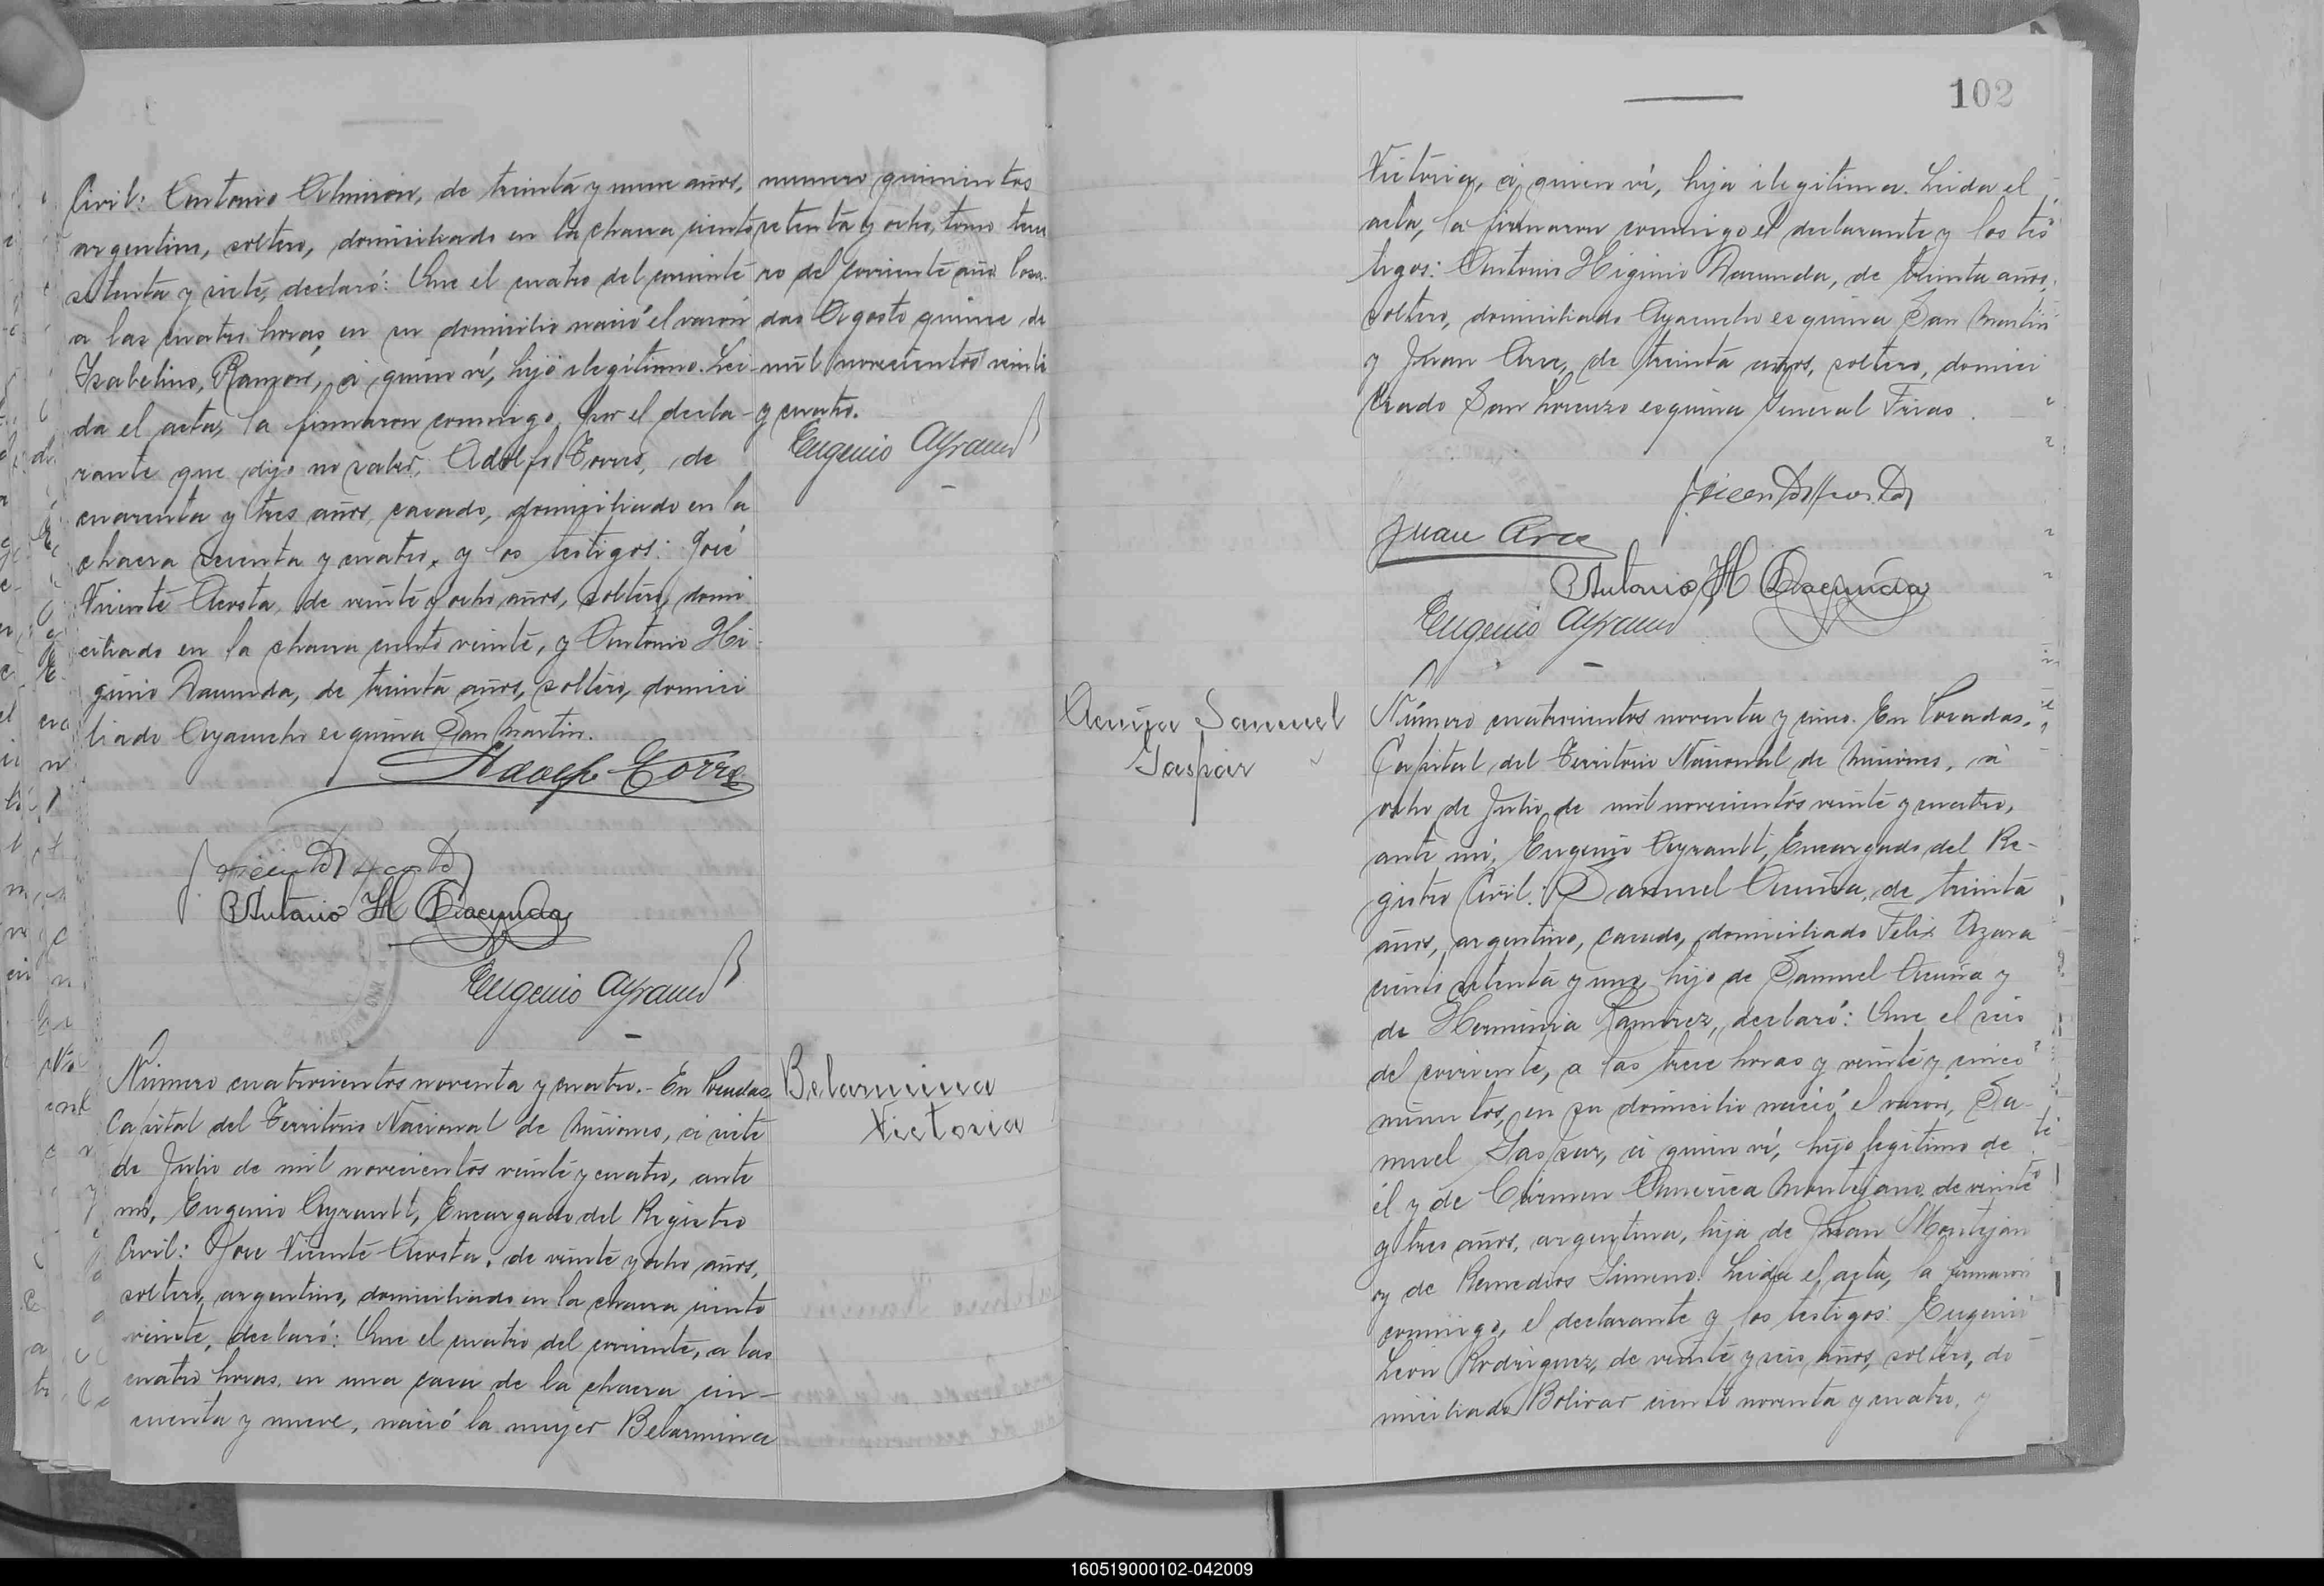 Civil: Antonio Almirón, de treinta y nueve años,
argentino, soltero, domiciliado en la chacra ciento
setenta y siete, declaró: Que el cuatro del corriente
a las cuatro horas, en su domicilio nació el varón
Isabelino, Ramón, á quien ví, hijo ilegítimo. Lei-
da el acta, la firmaron conmigo, por el decla-
rante que dijo no saber, Adolfo Torres, de
cuarenta y tres años, casado, domiciliado en la
chacra setenta y cuatro, y los testigos: José
Vicente Acosta, de veinte y ocho años, soltero, domi
ciliado en la chacra ciento veinte, y Antonio Hi-
ginio Dacunda, de treinta años, soltero, domici
liado Ayacucho esquina San Martin.
Adolfo Torre
J Vicente Acosta
Antonio H Dacunda
Eugenio Ayrault
Número cuatrocientos noventa y cuatro.- En Posadas,
Capital del Territorio Nacional de Misiones, á siete
de Julio de mil novecientos veinte y cuatro, ante
mí, Eugenio Ayrault, Encargado del Registro
Civil: José Vicente Acosta, de veinte y ocho años,
soltero, argentino, domiciliado en la chacra ciento
veinte, declaró: Que el cuatro del corriente, a las
cuatro horas, en una casa de la chacra cin-
cuenta y nueve, nació la mujer Belarmina
numero quinientos
setenta y ocho, tomo terce
ro del corriente año. Posa-
das Agosto quince de
mil novecientos veinte
y cuatro.
Eugenio Ayrault
Belarmina
Victoria
102
Victoria, á quien ví, hija ilegitima. Leida el
acta, la firmaron conmigo el declarante y los tes
tigos: Antonio Higinio Dacunda, de treinta años,
soltero, domiciliado Ayacucho esquina San Martin
y Juan Arce, de treinta años, soltero, domici
liado San Lorenzo esquina General Frias.
J Vicente Acosta
Juan Arce
Antonio H Dacunda
Eugenio Ayrault
Acuña Samuel
Gaspar
Número cuatrocientos noventa y cinco. En Posadas,
Capital del Territorio Nacional de Misiones, á
ocho de Julio de mil novecientos veinte y cuatro,
ante mí, Eugenio Ayrault, Encargado del Re-
gistro Civil: Samuel Acuña, de treinta
años, argentino, casado, domiciliado Felix Azara
ciento setenta y uno, hijo de Samuel Acuña y
de Herminia Ramirez, declaró: Que el seis
del corriente, a las trece horas y veinte y cinco
minutos, en su domicilio nació el varón, Sa-
muel Gaspar, á quien ví, hijo legitimo de
él y de Cármen América Montejano, de veinte
y tres años, argentina, hija de Juan Montejan
y de Remedios Gimeno. Leida el acta, la firmaron
conmigo, el declarante y los testigos: Eugenio
León Rodríguez, de veinte y seis años, soltero, do
miciliado Bolivar ciento noventa y cuatro, y
160519000102-042009